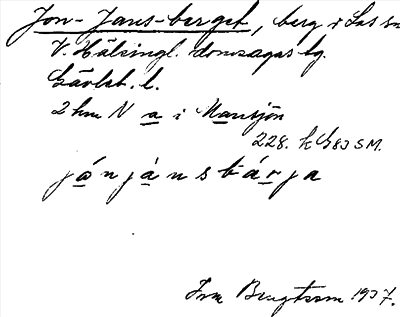 Jon-Jans-berget, berg i Los sn
V. Hälsingl. domsagas tg.
Gävleb. l.
2 km N a i Mansjön
228. k G83 SM.
jónjánsbárja
Bengtsson 1937.